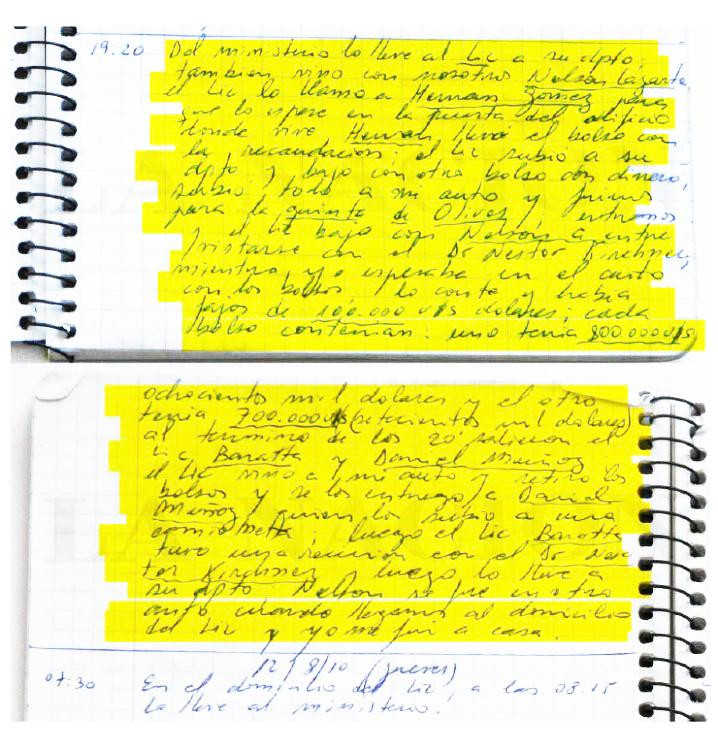 19:20 Del ministerio lo lleve al Lic a su dpto,
tambien vino con nosotros Nelson Lazarte
el Lic lo llamo a Hernan Gomez para
que lo espere en la puerta del edificio
donde vive Hernan llevó el bolso con
la recaudacion; el Lic subió a su
dpto y bajo con otro bolso con dinero,
subió todo a mi auto y fuimos
para la quinta de Olivos, entramos
y el Lic bajo con Nelson a entre
vistarse con el Dr Nestor Kirchner,
mientras yo esperaba en el auto
con los bolsos lo conte y habia
fajos de 100.000 u$s dolares; cada
bolso contenian: uno tenia 800.000 u$s
ochocientos mil dolares y el otro
tenia 700.000 u$s (setecientos mil dolares)
al termino de los 20' salieron el
Lic Baratta y Daniel Muñoz
el Lic vino a mi auto y retiro los
bolsos y se los entrego a Daniel
Muñoz, quien los subio a una
camioneta; luego el Lic Baratta
tuvo una reunion con el Dr Nes
tor Kirchner y luego lo lleve a
su dpto Nelson se fue en otro
auto cuando llegamos al domicilio
del Lic y yo me fui a casa.
12/8/10 (jueves)
07:30 En el domicilio del Lic, a las 08:15
lo lleve al ministerio.
LA NACION
LA NACION